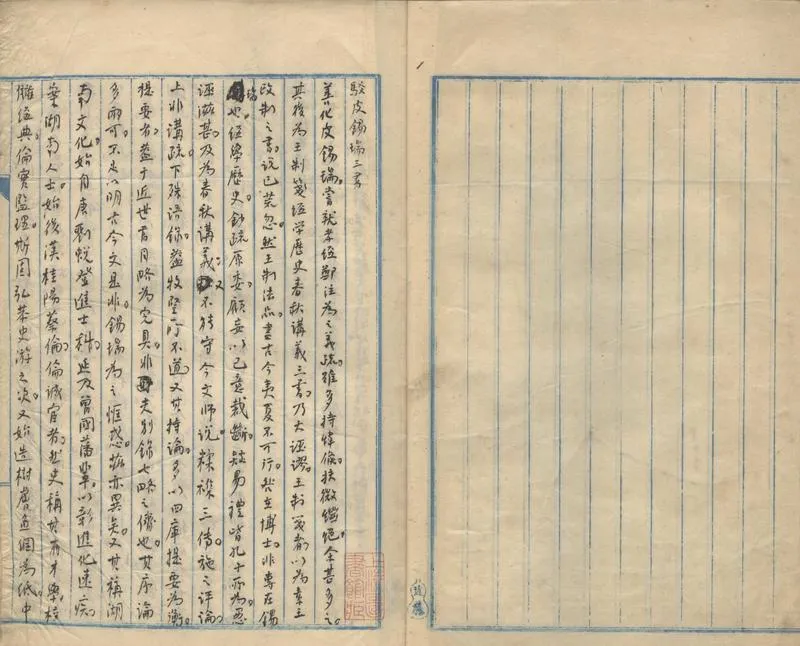 駮皮錫瑞三書
善化皮錫瑞嘗就孝經鄭注為之義疏雖多持緯候扶微繼絕余甚多之
其後為王制箋經學歷史春秋講義三書乃大誣謬王制箋者以為素王
改制之書說已荒忽然王制法品盡古今夷夏不可行咎在博士非專在錫
瑞也經學歷史鈔疏原委顧妄以己意裁斷疑易禮皆孔子所為愚
誣滋甚及為春秋講義又不能守今文師說糅雜三傳施之評論
上非講疏下殊語錄蓋牧豎所不道又其持論多以四庫提要為衡
提要者蓋于近世書目略為完具非夫別錄七略之儔也其序論
多兩可不足以明古今文是非錫瑞為之恇惑茲亦異矣又其稱湖
南文化始自唐劉蛻登進士科近及曾國藩輩以彰進化速疾
案湖南人士始後漢桂陽蔡倫倫誠宦者然史稱其有才學校
讎經典倫實監理斯固弘恭史游之次又始造樹膚魚網為紙中